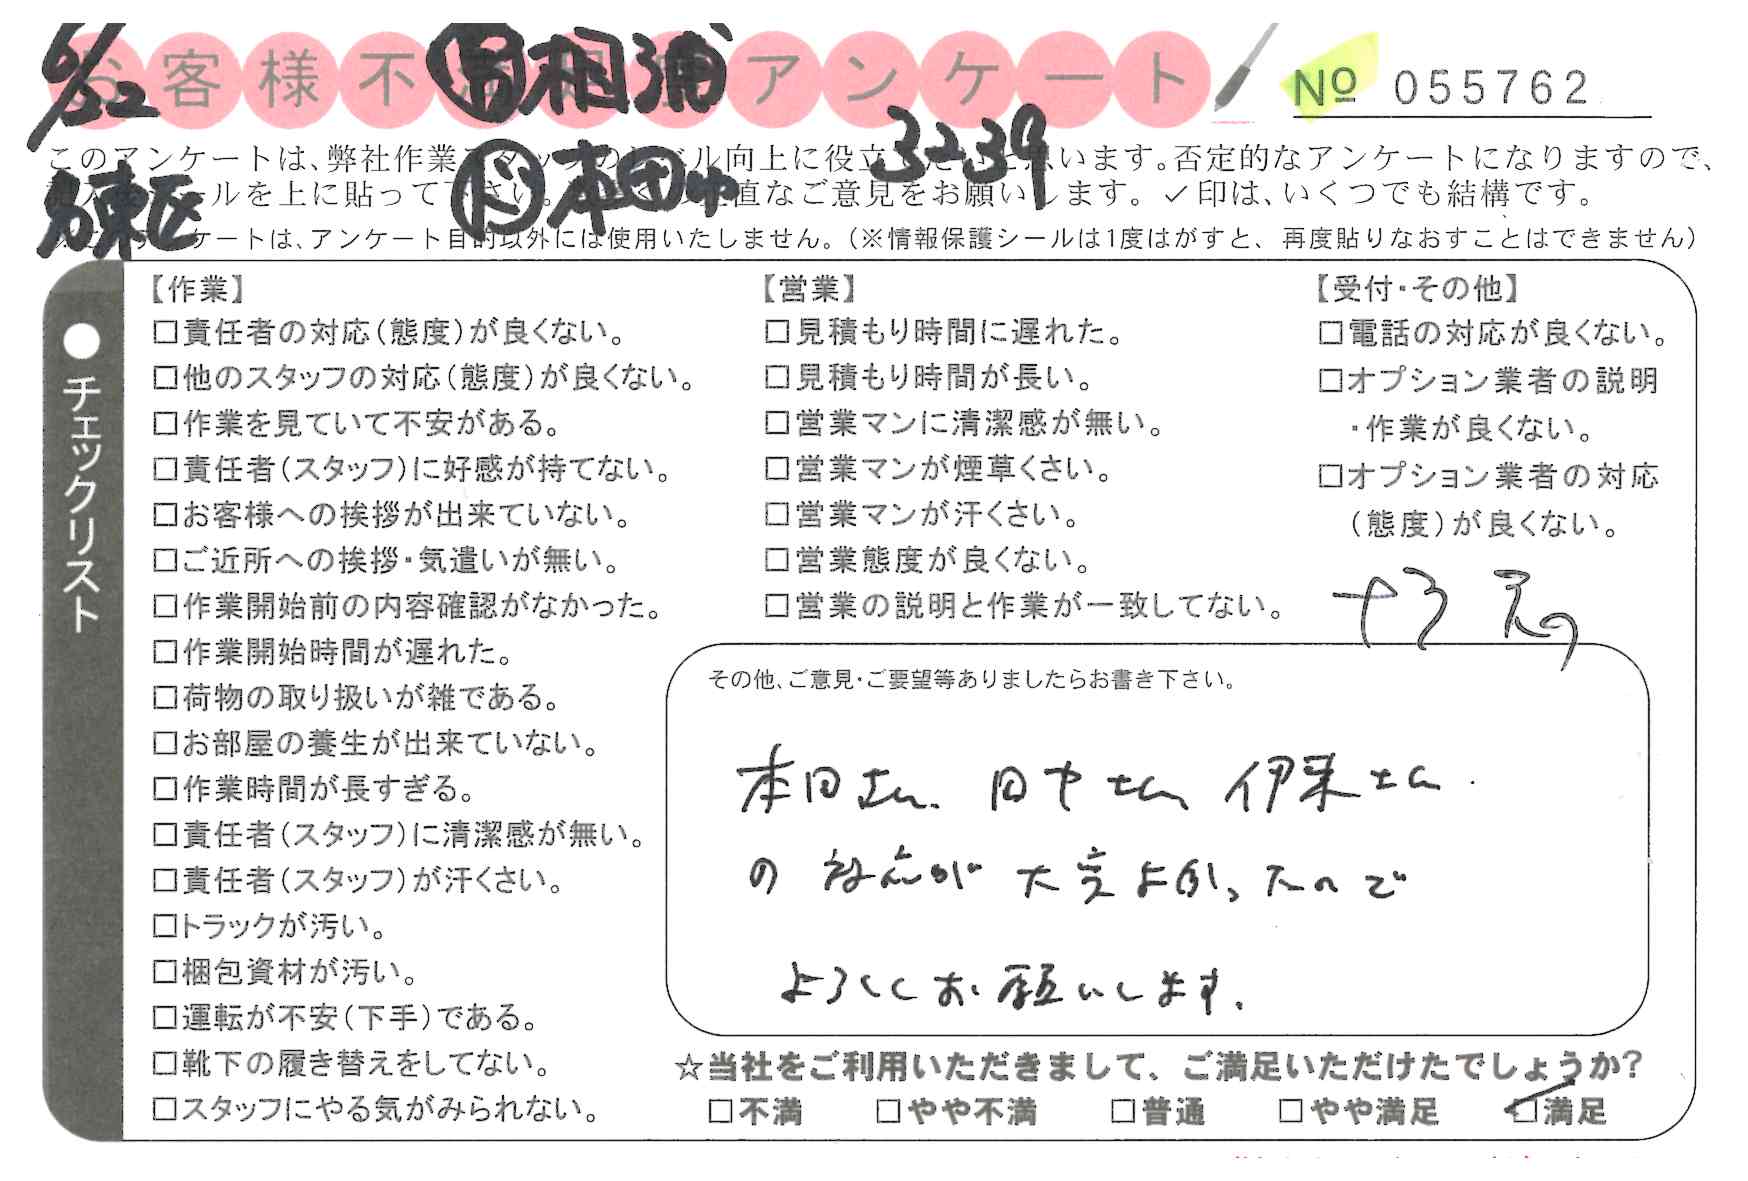 6/22
お客様不満足度アンケート
営相浦
№ 055762
3239
このアンケートは、弊社作業スタッフのレベル向上に役立てたいと思います。否定的なアンケートになりますので、
記入後シールを上に貼って下さい。 直なご意見をお願いします。✓印は、いくつでも結構です。
ド本田中
東区
アンケートは、アンケート目的以外には使用いたしません。(※情報保護シールは1度はがすと、再度貼りなおすことはできません)
●チェックリスト
【作業】
□責任者の対応(態度)が良くない。
□他のスタッフの対応(態度)が良くない。
□作業を見ていて不安がある。
□責任者(スタッフ)に好感が持てない。
□お客様への挨拶が出来ていない。
□ご近所への挨拶・気遣いが無い。
□作業開始前の内容確認がなかった。
□作業開始時間が遅れた。
□荷物の取り扱いが雑である。
□お部屋の養生が出来ていない。
□作業時間が長すぎる。
□責任者(スタッフ)に清潔感が無い。
□責任者(スタッフ)が汗くさい。
□トラックが汚い。
□梱包資材が汚い。
□運転が不安(下手)である。
□靴下の履き替えをしてない。
□スタッフにやる気がみられない。
【営業】
□見積もり時間に遅れた。
□見積もり時間が長い。
□営業マンに清潔感が無い。
□営業マンが煙草くさい。
□営業マンが汗くさい。
□営業態度が良くない。
□営業の説明と作業が一致してない。
【受付・その他】
□電話の対応が良くない。
□オプション業者の説明
・作業が良くない。
□オプション業者の対応
(態度)が良くない。
その他、ご意見・ご要望等ありましたらお書き下さい。
本田さん、田中さん、伊東さん
の対応が大変よかったので
よろしくお願いします。
☆当社をご利用いただきまして、ご満足いただけたでしょうか?
□不満 □やや不満 □普通 □やや満足 ☑満足